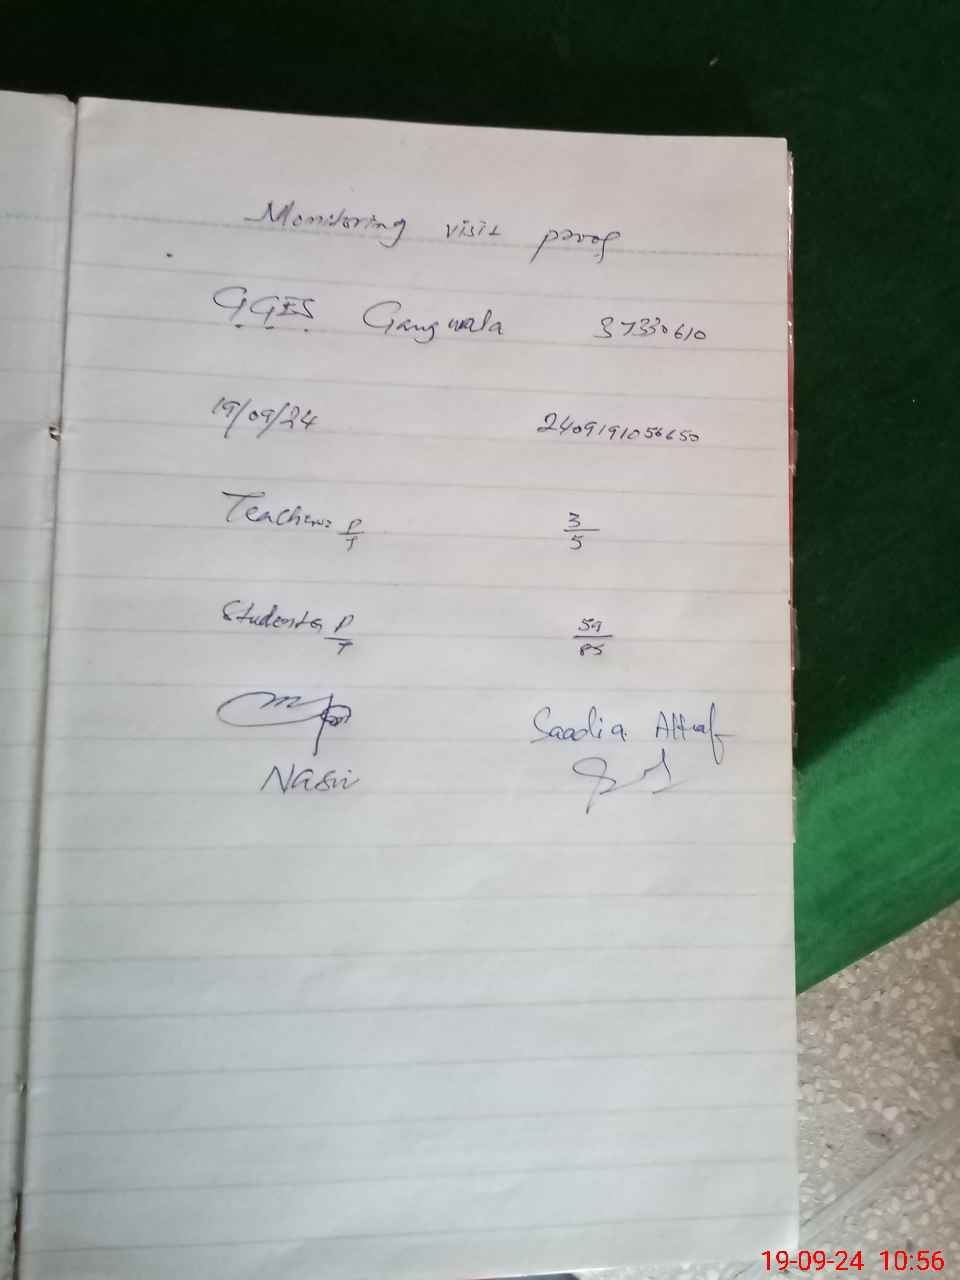 Monitoring visit proof
GGES Gangwala 37330610
19/09/24 2409191056650
Teachers P/T 3/5
Students P/T 59/85
Nasir Saadia Altaf
19-09-24 10:56